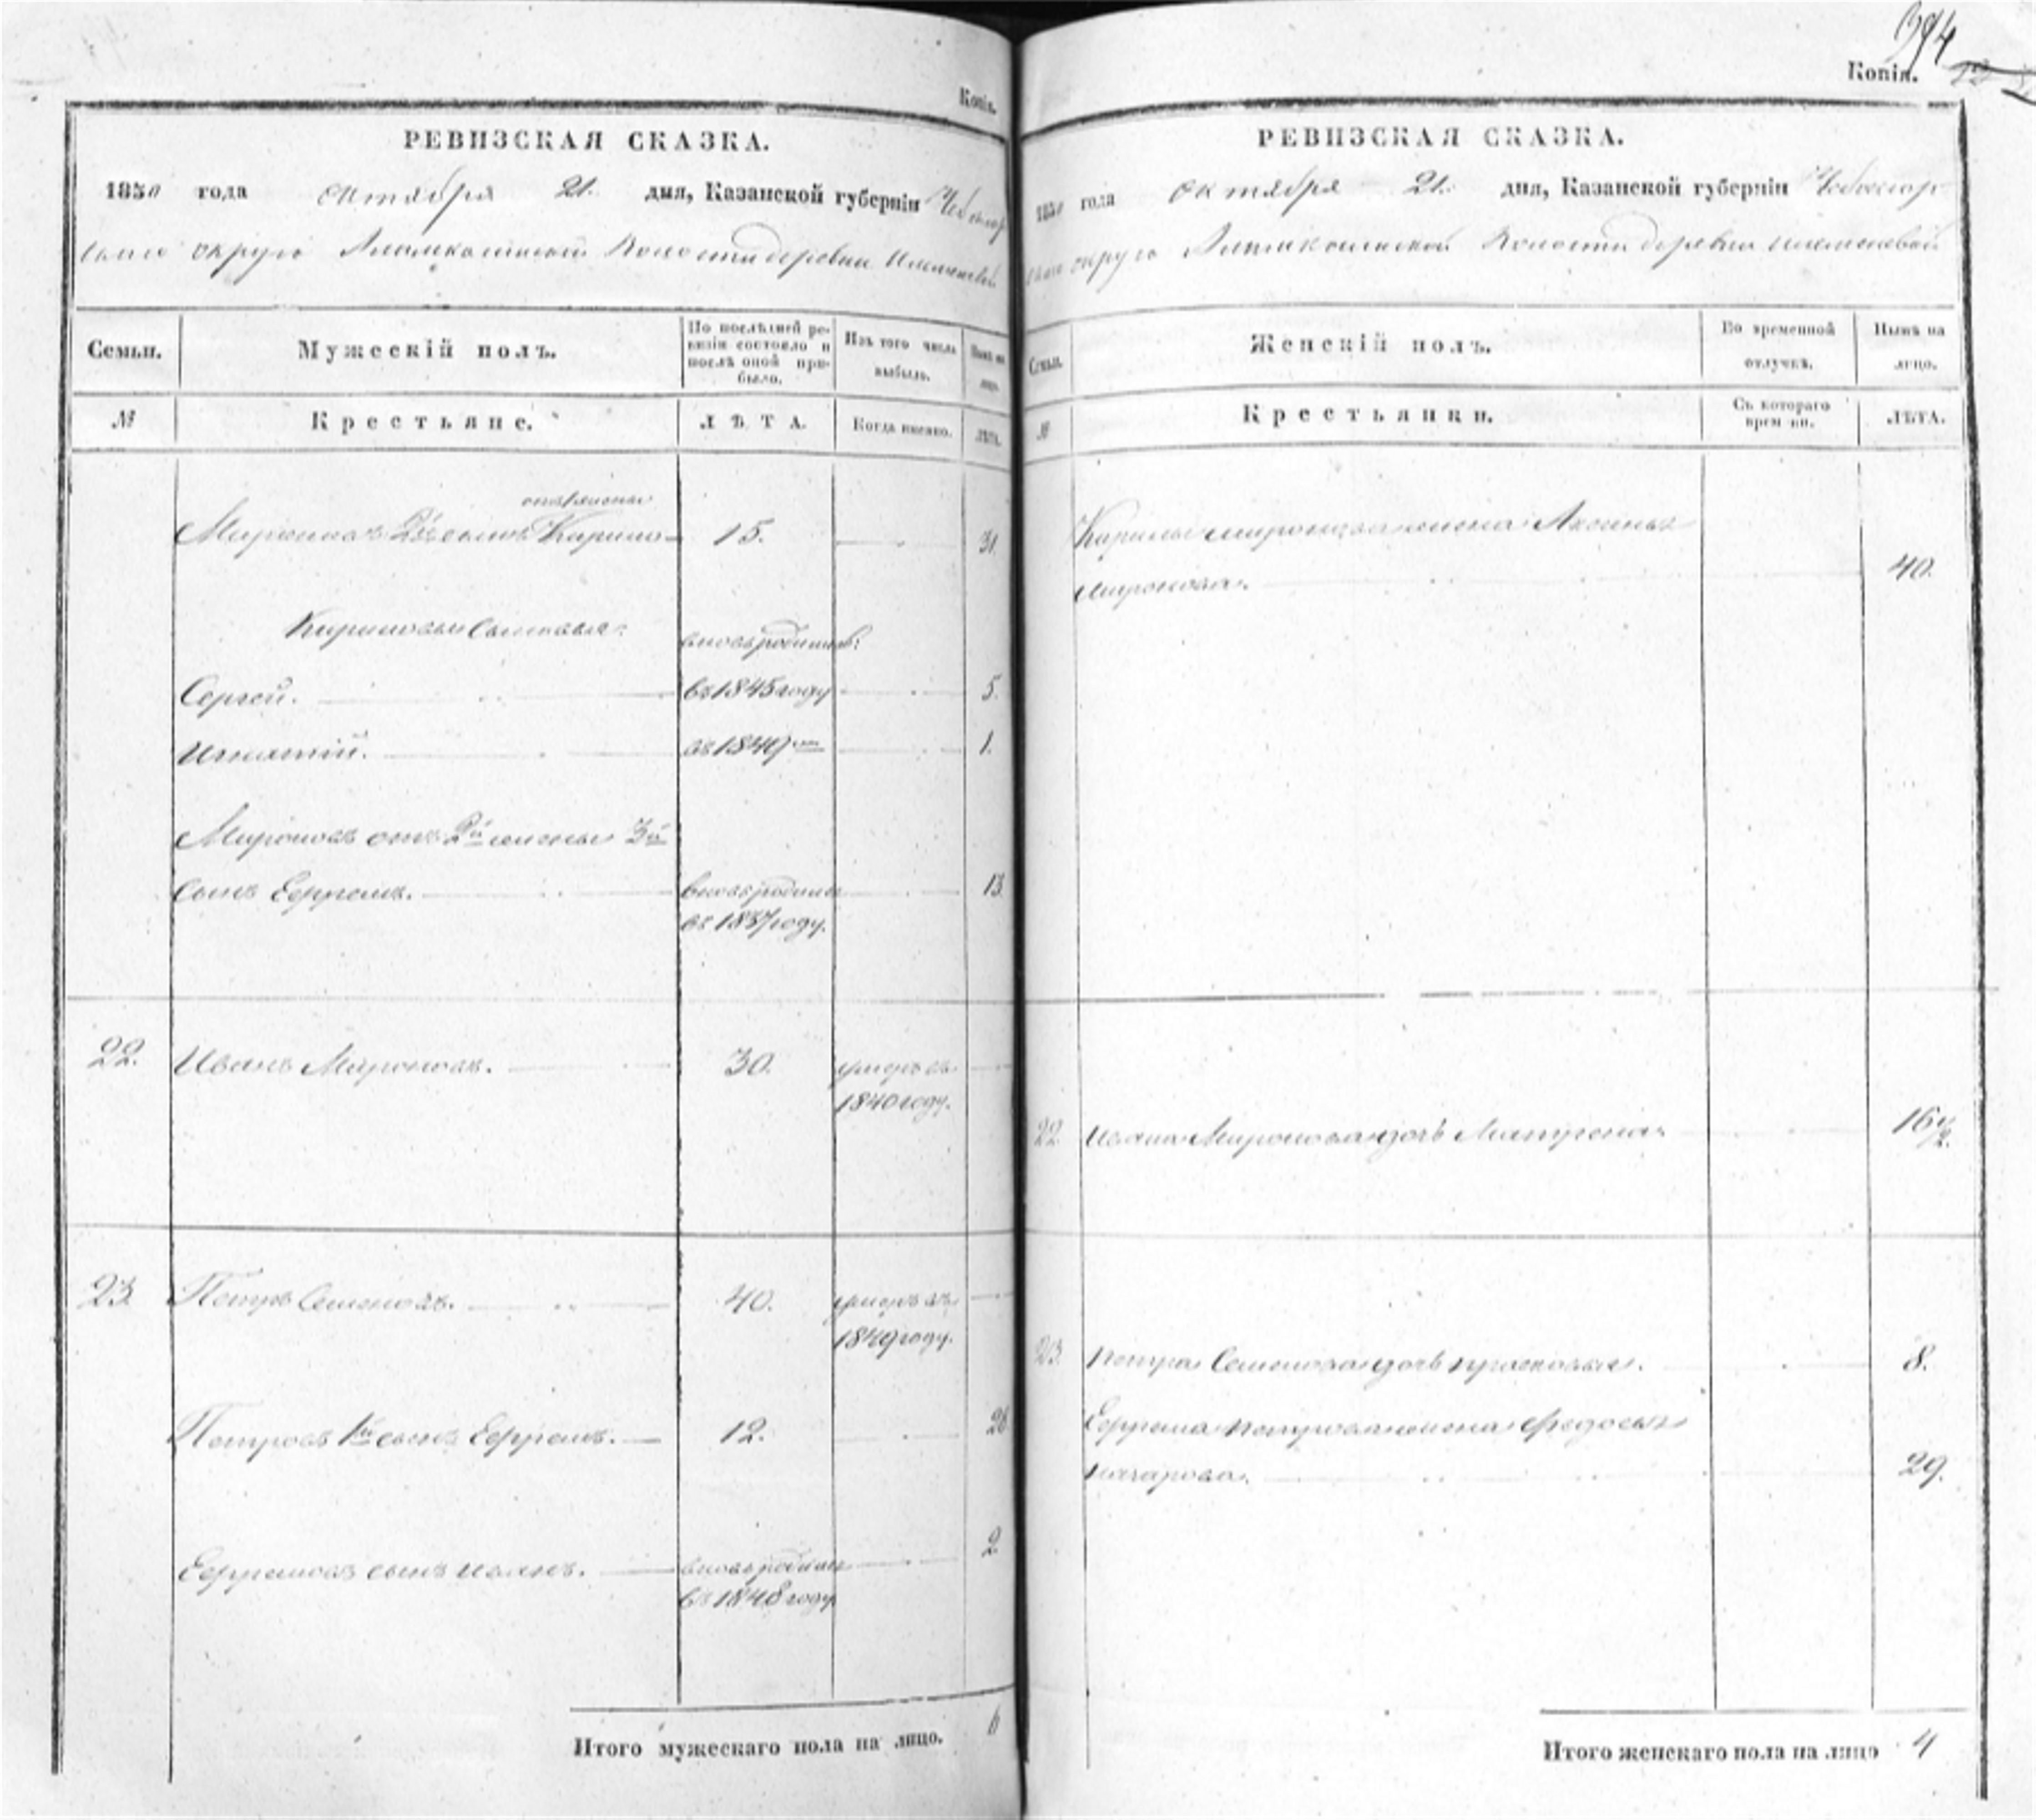 Копія.
РЕВИЗСКАЯ СКАЗКА.
1850 года октября 21. дня, Казанской губерніи Чебоксар
скаго округа Волости деревни
Семьи.
Мужескій полъ.
По послѣдней ре-
визіи состояло и
послѣ оной при-
было.
Изъ того числа
выбыло.
Нынѣ на
лицо.
№
Крестьяне.
ЛѢТА.
Когда именно.
ЛѢТА.
отъ 1 жены
Мироновъ 2й сынъ Кирило 15. 31.
Кириловы сыновья: вновь родились:
Сергей. въ 1845 году 5.
Игнатій. въ 1849 1.
Мироновъ отъ 2й жены 3й
сынъ Ефремъ. вновь родился 13.
въ 1837 году.
22. Иванъ Мироновъ. 30. умеръ въ
1840 году.
23. Петръ Семеновъ. 40. умеръ въ
1849 году.
Петровъ 1й сынъ Ефремъ. 12. 28
Ефремовъ сынъ Иванъ. вновь родился 2.
въ 1848 году
Итого мужескаго пола на лицо. 6
394
Копія.
РЕВИЗСКАЯ СКАЗКА.
1850 года октября 21. дня, Казанской губерніи Чебоксар
скаго округа Волости деревни
Семьи.
Женскій полъ.
Во временной
отлучкѣ.
Нынѣ на
лицо.
№
Крестьянки.
Съ котораго
времени.
ЛѢТА.
Кирилы Миронова жена Аксинья
Миронова. 40.
22. Ивана Миронова дочь Матрена 16 1/2.
23. Петра Семенова дочь Прасковья. 8.
Ефрема Петрова жена Федосья
Захарова. 29.
Итого женскаго пола на лицо 4